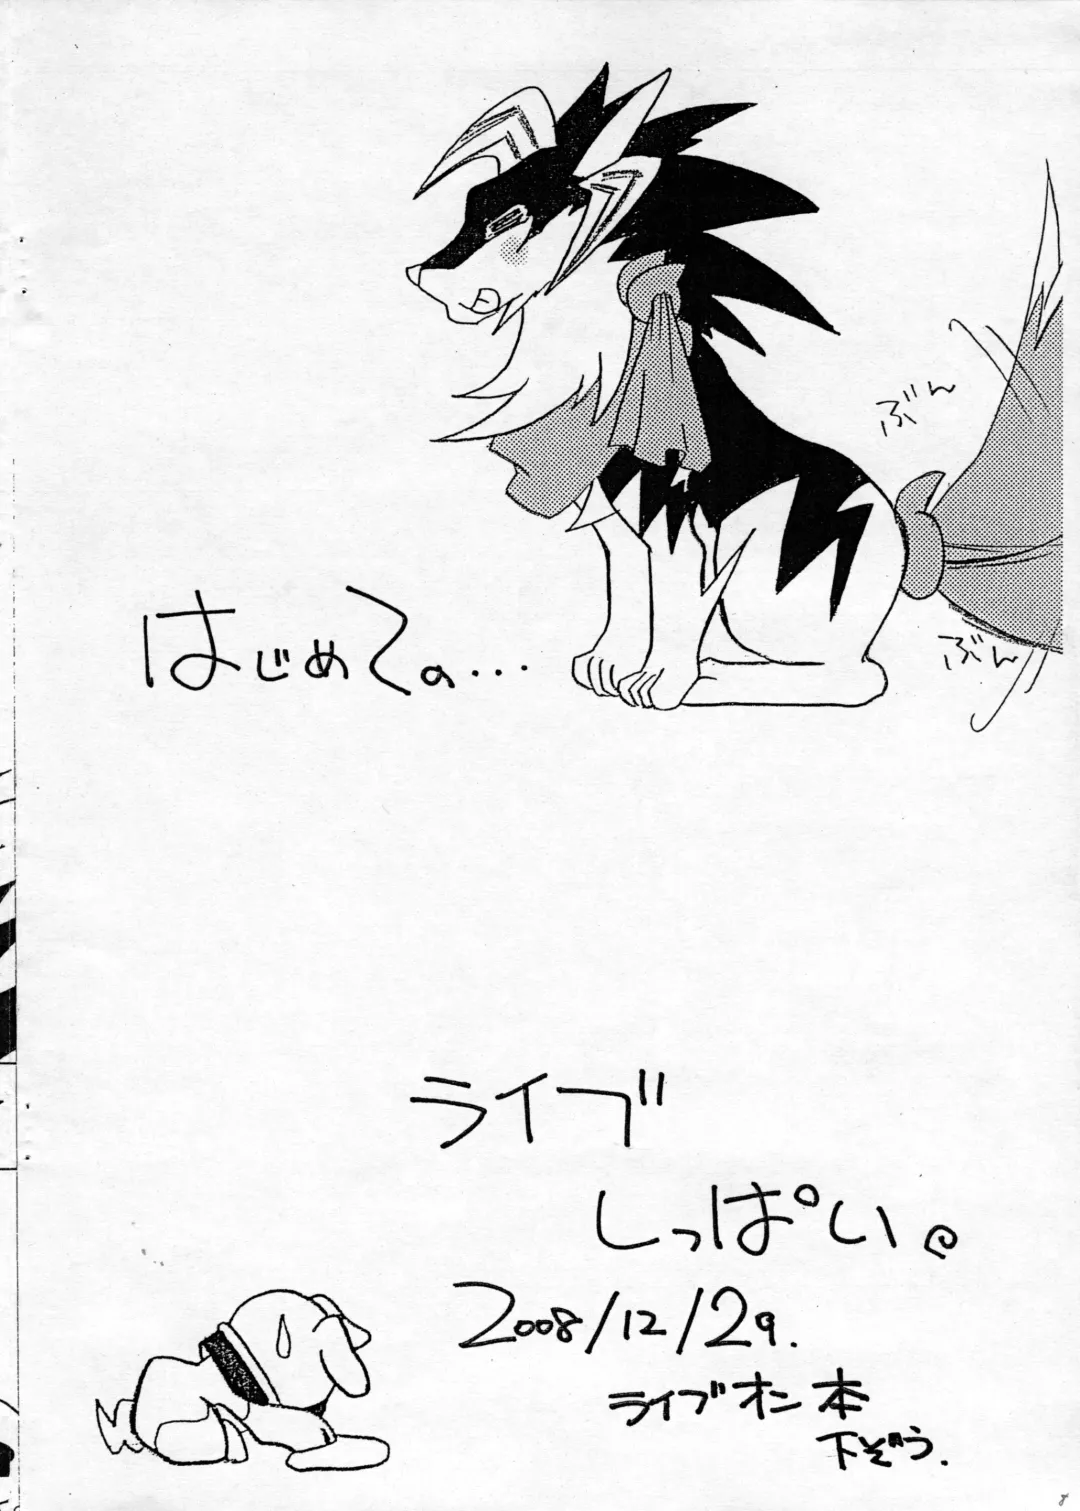 ぶん
はじめての...
ぶん
ライブ
しっぱい。
2008/12/29.
ライブオン本
下ぞう.
8